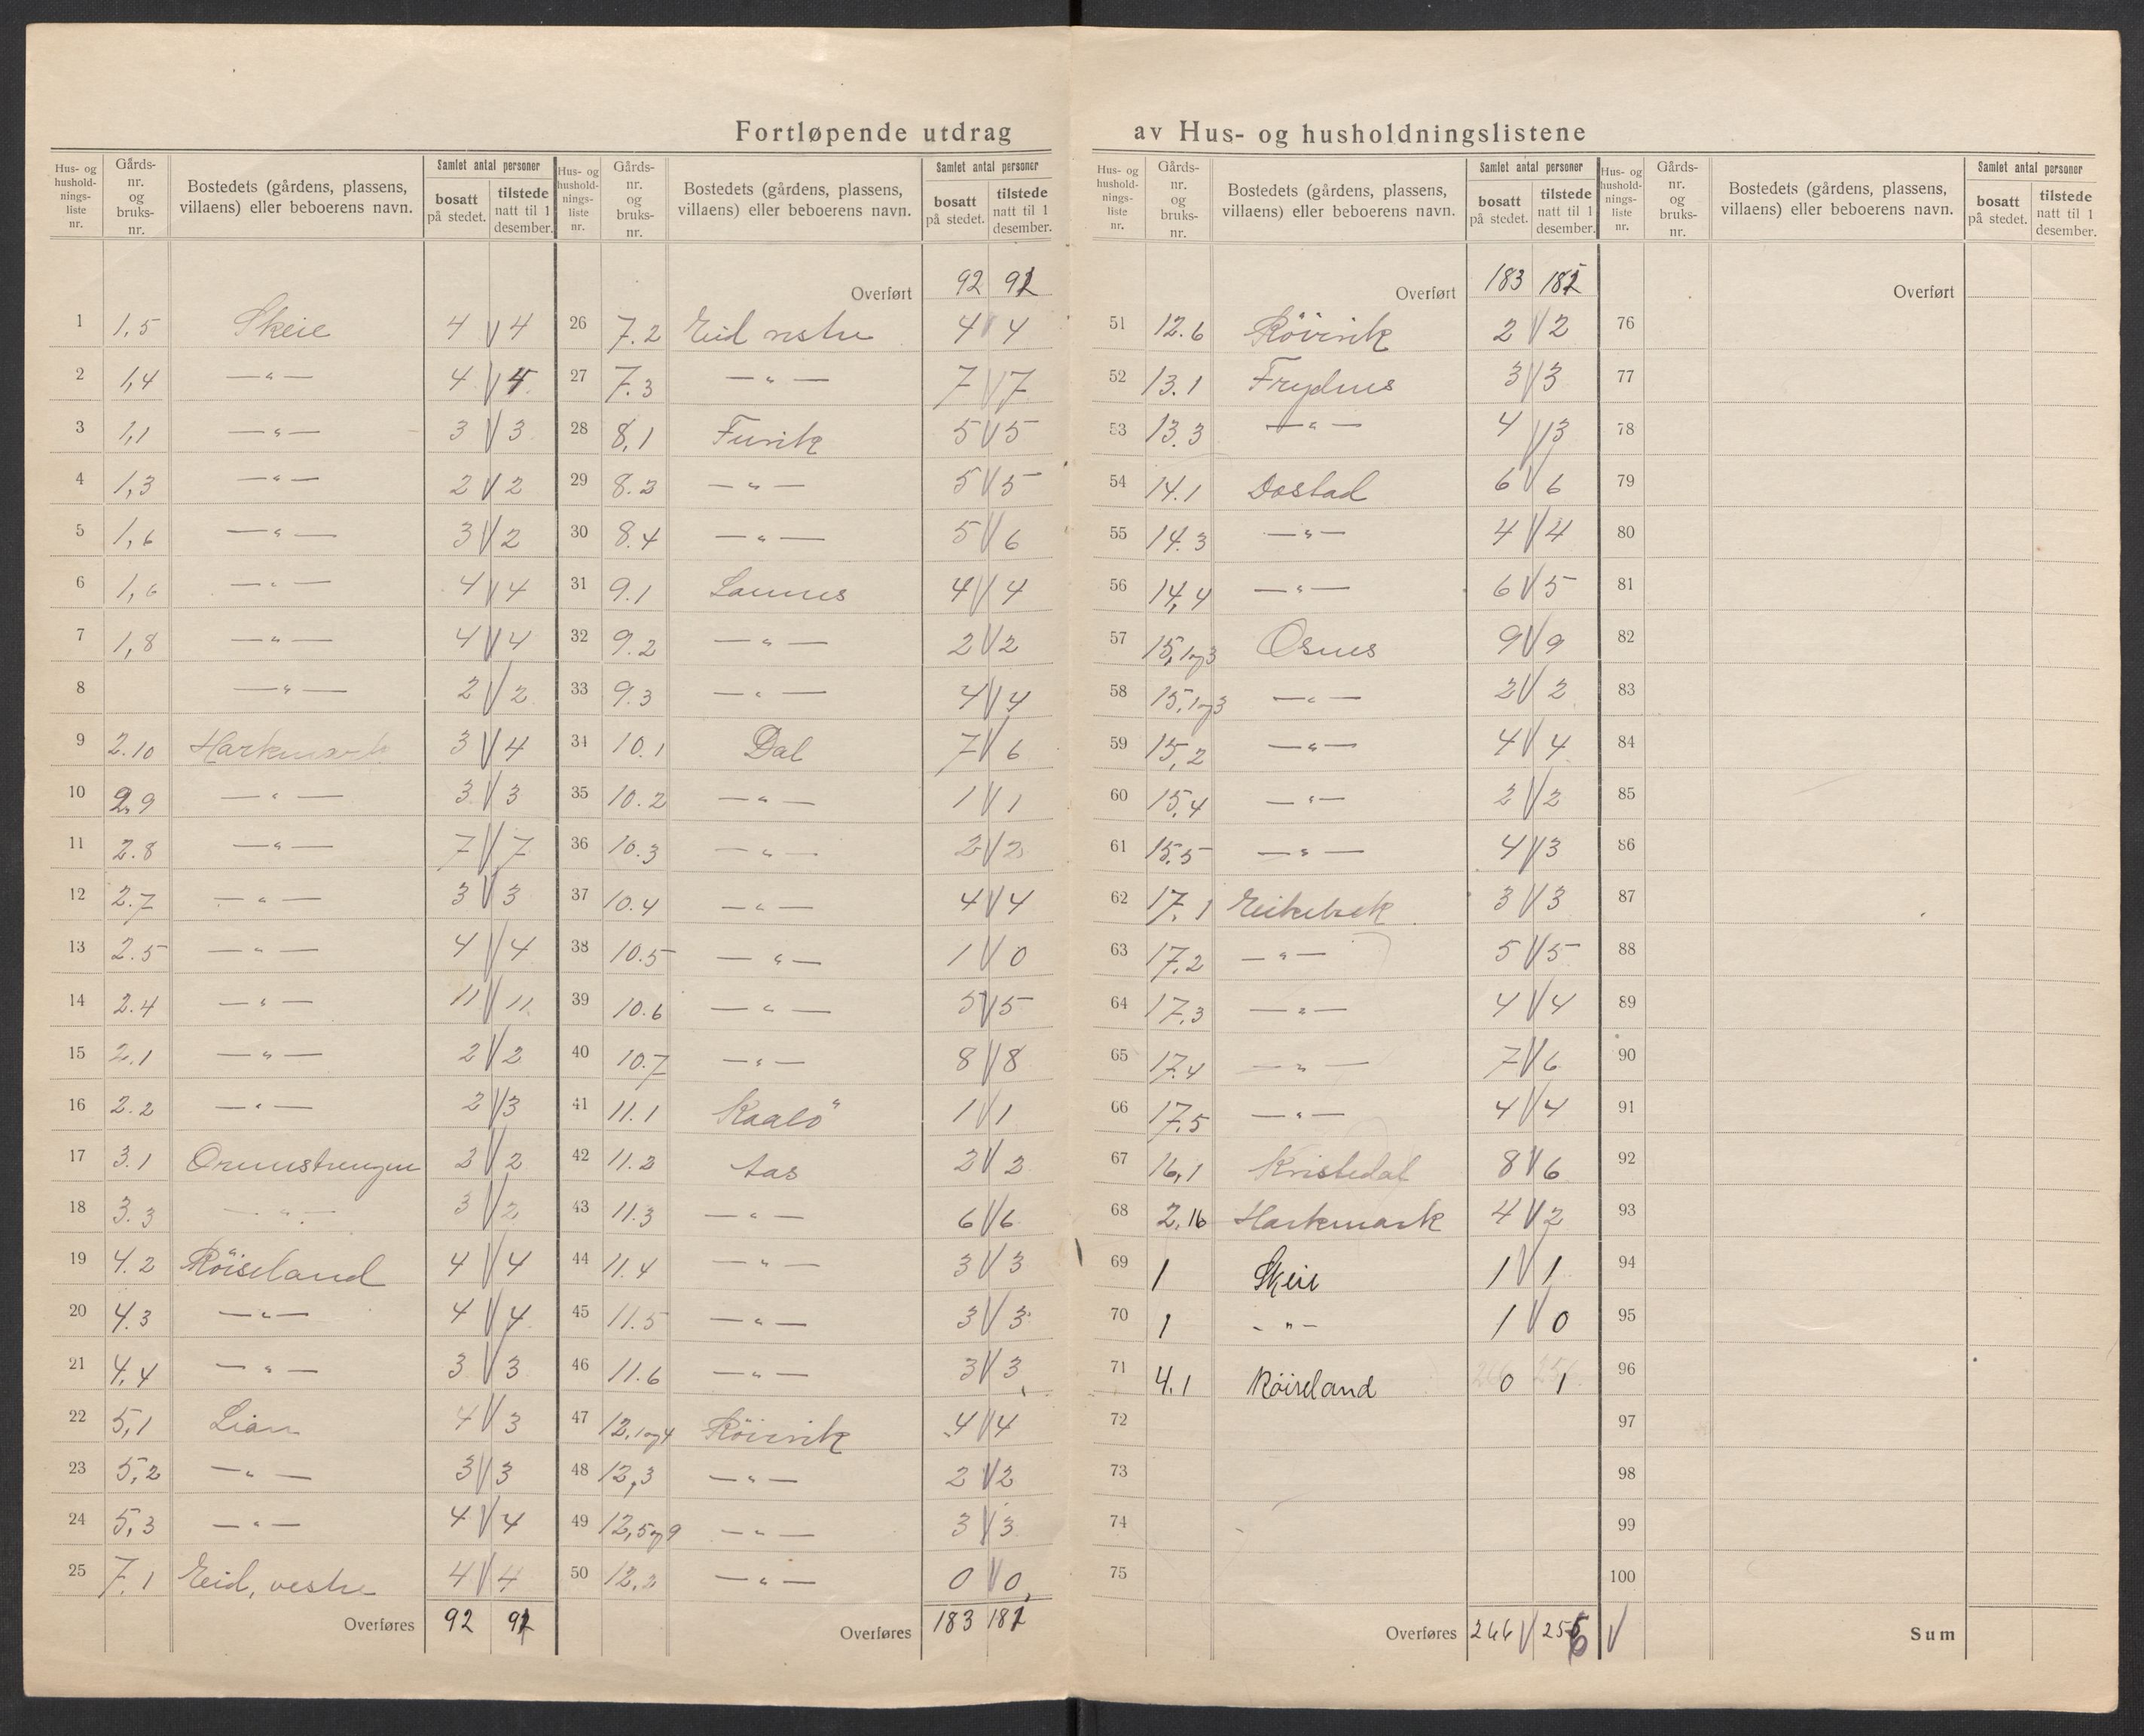 Fortløpende utdrag av Hus- og husholdningslistene
Hus- og husholdnings-liste nr. | Gårds-nr. og bruks-nr. | Bostedets (gårdens, plassens, villaens) eller beboerens navn. | Samlet antal personer | bosatt på stedet. | tilstede natt til 1 desember.
1 1,5 Skeie 4 4
2 1,4 —„— 4 4
3 1,1 —„— 3 3
4 1,3 —„— 2 2
5 1,6 —„— 3 2
6 1,6 —„— 4 4
7 1,8 —„— 4 4
8 —„— 2 2
9 2.10 Harkmark 3 4
10 2,9 —„— 3 3
11 2.8 —„— 7 7
12 2.7 —„— 3 3
13 2.5 —„— 4 4
14 2.4 —„— 11 11
15 2.1 —„— 2 2
16 2.2 —„— 2 3
17 3.1 Ormestrengen 2 2
18 3.3 —„— 3 2
19 4.2 Röiseland 4 4
20 4.3 —„— 4 4
21 4.4 —„— 3 3
22 5,1 Lian 4 3
23 5,2 —„— 3 3
24 5,3 —„— 4 4
25 7.1 Eid, vestre 4 4
Overføres 92
Hus- og husholdnings-liste nr. | Gårds-nr. og bruks-nr. | Bostedets (gårdens, plassens, villaens) eller beboerens navn. | Samlet antal personer | bosatt på stedet. | tilstede natt til 1 desember.
Overført 92
26 7.2 Eid vestre 4 4
27 7.3 —„— 7 7
28 8,1 Furik 5 5
29 8.2 —„— 5 5
30 8.4 —„— 5 6
31 9.1 Launes 4 4
32 9.2 —„— 2 2
33 9.3 —„— 4 4
34 10.1 Dal 7 6
35 10.2 —„— 1 1
36 10.3 —„— 2 2
37 10.4 —„— 4 4
38 10.5 —„— 1 0
39 10.6 —„— 5 5
40 10.7 —„— 8 8
41 11.1 Kaalö 1 1
42 11.2 Aas 2 2
43 11.3 —„— 6 6
44 11.4 —„— 3 3
45 11.5 —„— 3 3
46 11.6 —„— 3 3
47 12,1og4 Röivik 4 4
48 12,3 —„— 2 2
49 12,5og9 —„— 3 3
50 12,2 —„— 0 0
Overføres 183
Hus- og husholdnings-liste nr. | Gårds-nr. og bruks-nr. | Bostedets (gårdens, plassens, villaens) eller beboerens navn. | Samlet antal personer | bosatt på stedet. | tilstede natt til 1 desember.
Overført 183
51 12.6 Rövik 2 2
52 13.1 Frydnes 3 3
53 13.3 —„— 4 3
54 14.1 Dostad 6 6
55 14.3 —„— 4 4
56 14,4 —„— 6 5
57 15,1og3 Osnes 9 9
58 15,1og3 —„— 2 2
59 15,2 —„— 4 4
60 15,4 —„— 2 2
61 15.5 —„— 4 3
62 17.1 Eikebæk 3 3
63 17.2 —„— 5 5
64 17.3 —„— 4 4
65 17.4 —„— 7 6
66 17.5 —„— 4 4
67 16,1 Kristedal 8 6
68 2.16 Harkmark 4 2
69 1 Skeie 1 1
70 1 -„- 1 0
71 4.1 Röiseland 0 1
72
73
74
75
Overføres 266
Hus- og husholdnings-liste nr. | Gårds-nr. og bruks-nr. | Bostedets (gårdens, plassens, villaens) eller beboerens navn. | Samlet antal personer | bosatt på stedet. | tilstede natt til 1 desember.
Overført
76
77
78
79
80
81
82
83
84
85
86
87
88
89
90
91
92
93
94
95
96
97
98
99
100
Sum